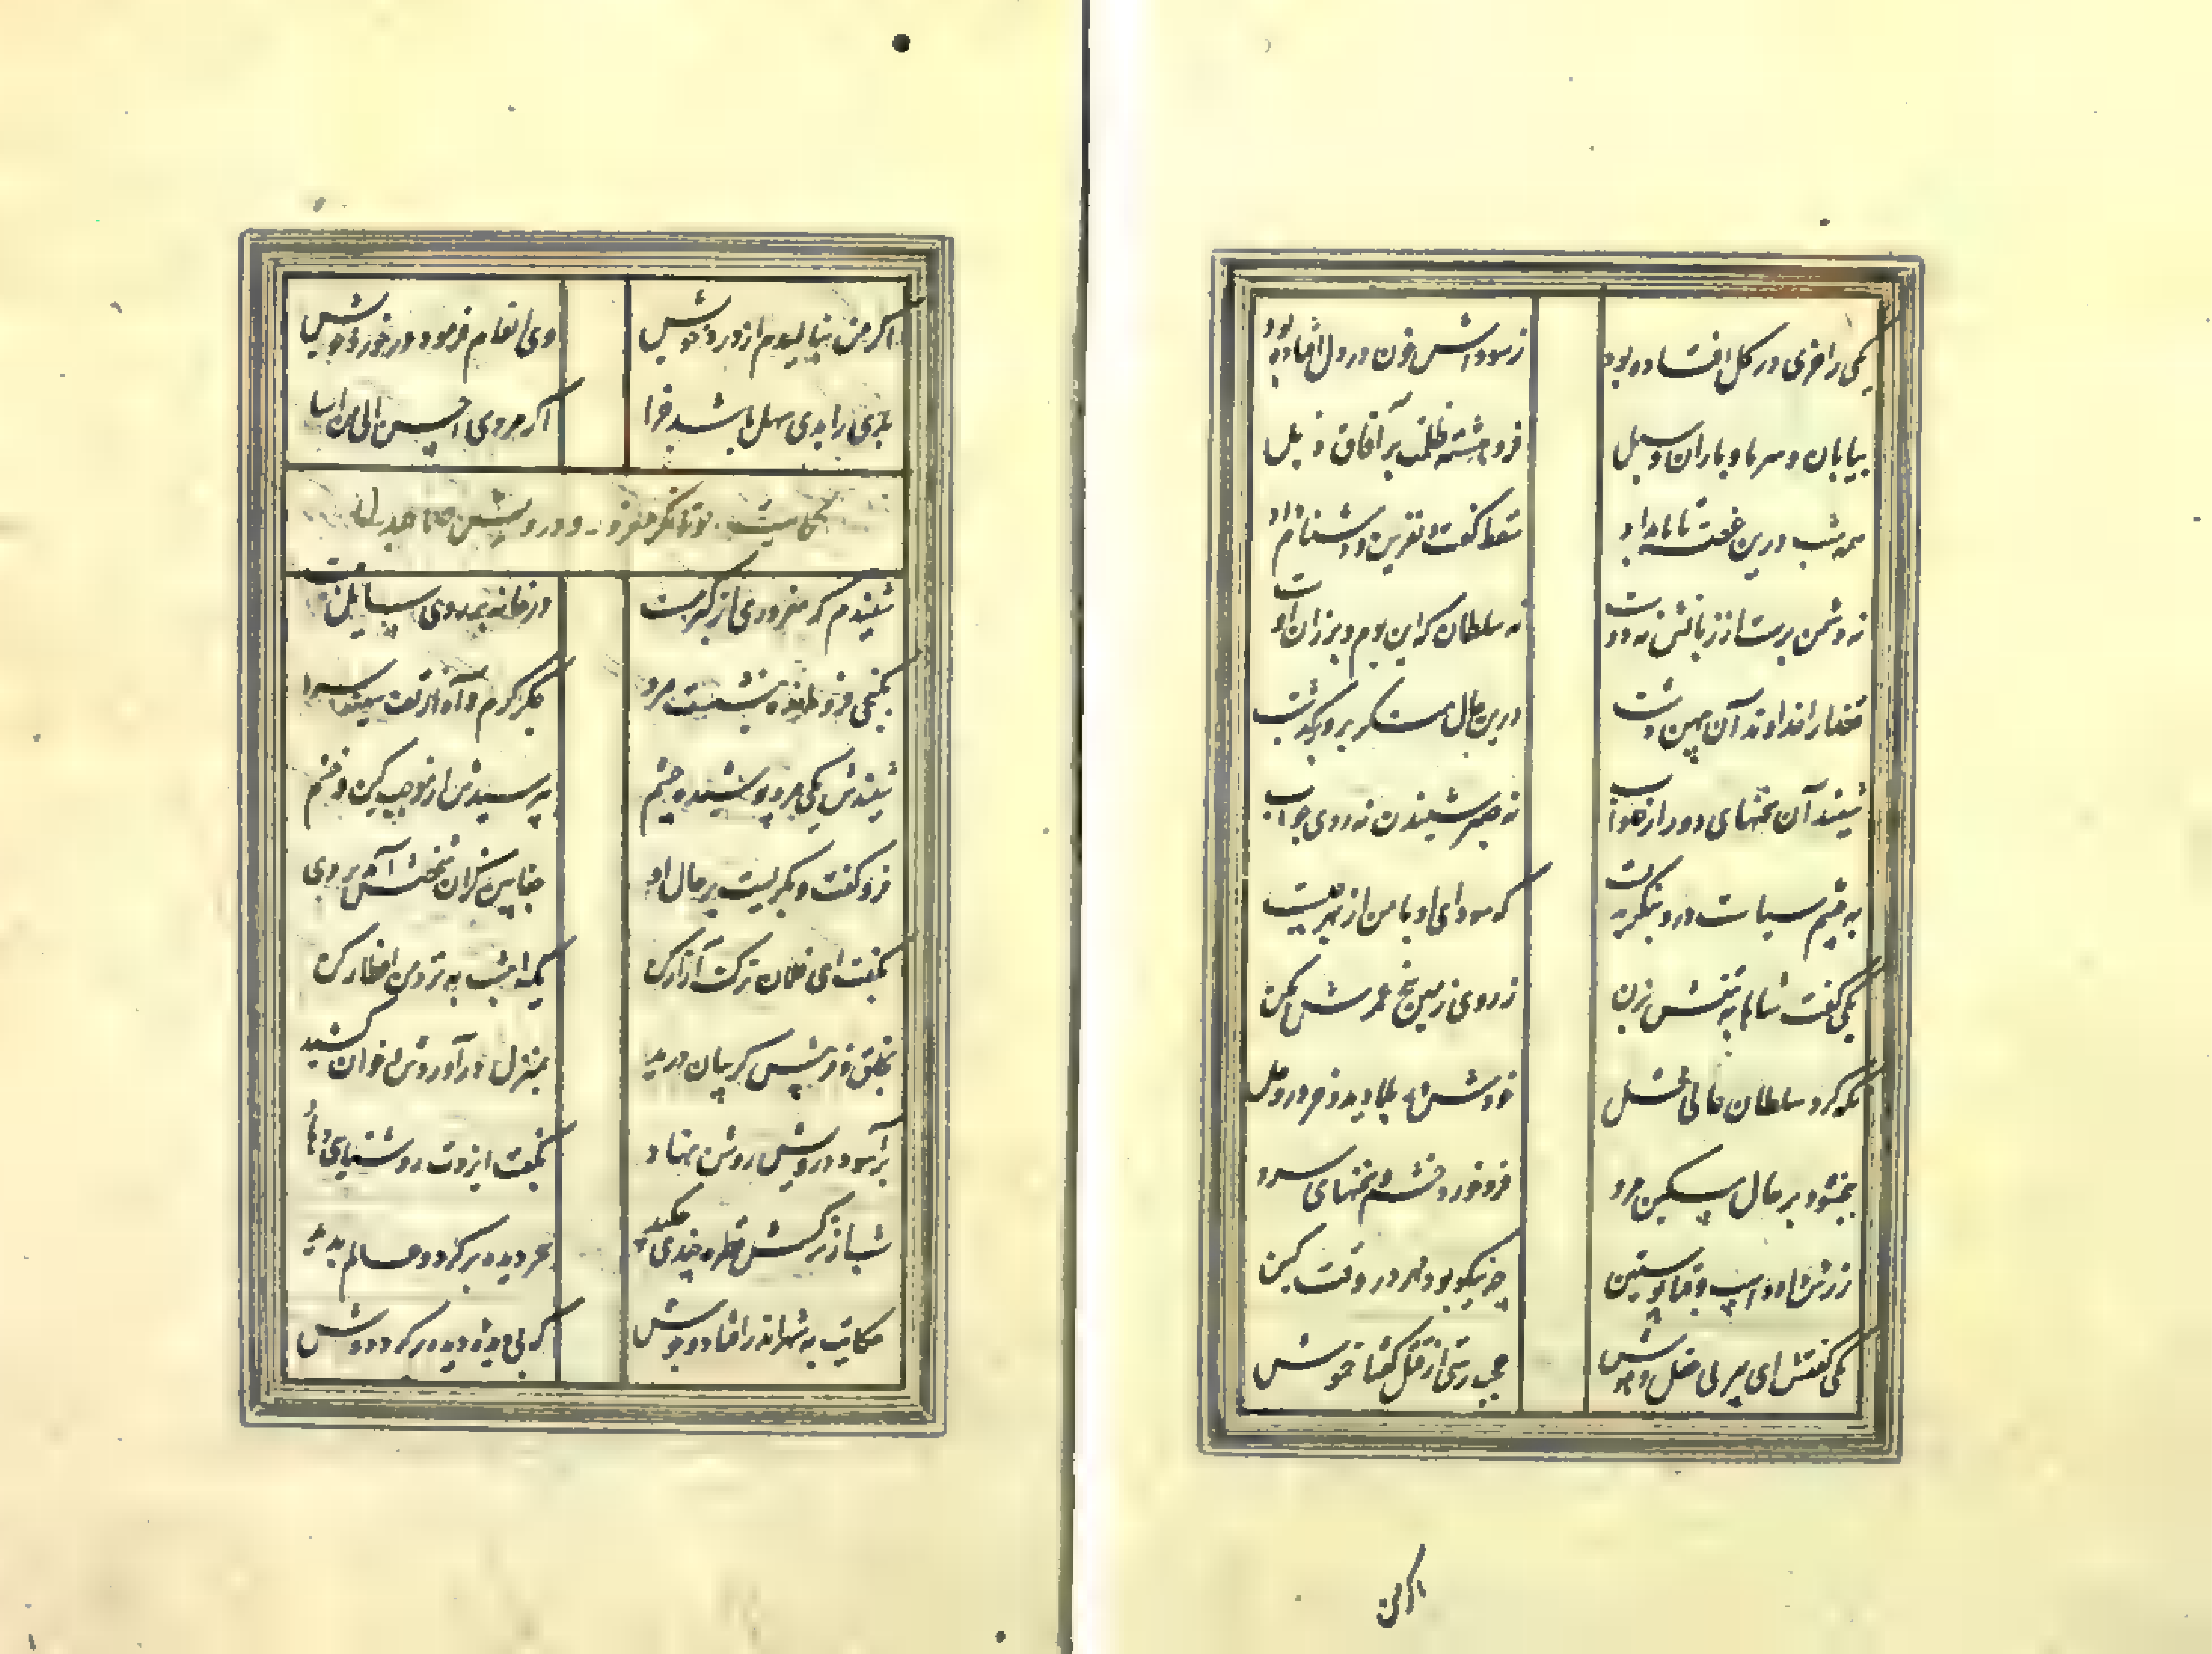 یکی را خری در گل افتاده بود ز سوداش خون در دل افتاده بود
بیابان و سرما و باران و سیل فروهشته ظلمت بر آفاق ذیل
همه شب درین غصه تا بامداد سقط گفت و نفرین و دشنام داد
نه دشمن برست از زبانش نه دوست نه سلطان که این بوم و بر زان اوست
قضا را خداوند آن پهن دشت درین حال منکر برو بر گذشت
شنید آن سخنهای دور از صواب نه صبر شنیدن نه روی جواب
به چشم سیاست درو بنگریست که سودای او با من از بهر چیست
یکی گفت شاها به تیغش بزن ز روی زمین بیخ عمرش بکن
نگه کرد سلطان عالی محل خودش در بلا دید و خر در وحل
ببخشود بر حال مسکین مرد فرو خورد خشم سخنهای سرد
زرش داد و اسپ و قبا پوستین چه نیکو بود مهر در وقت کین
یکی گفتش ای پیر بی عقل و هوش عجب رستی از قتل گفتا خموش
اگر من
اگر من بنالیدم از درد خویش وی انعام فرمود در خورد خویش
بدی را بدی سهل باشد جزا اگر مردی احسن الی من اسا
حکایت توانگر مغرور و درویش صاحبدل
شنیدم که مغروری از کبر مست در خانه بر روی سایل ببست
بکنجی فرو مانده بنشست مرد جگر گرم و آه از تف سینه سرد
شنیدش یکی مرد پوشیده چشم بپرسیدش از موجب کین و خشم
فرو گفت و بگریست بر حال او جفایی کزان شخصش آمد بروی
بگفت ای فلان ترک آزار کن یک امشب به نزد من افطار کن
بخلق و فریبش گریبان کشید بمنزل در آوردش و خوان کشید
برآسود درویش روشن نهاد بگفت ایزدت روشنایی دهاد
شب از نرگسش قطره چندی چکید سحر دیده بر کرد و عالم بدید
حکایت به شهر اندر افتاد و جوش که بی دیده دیده بر کرد دوش